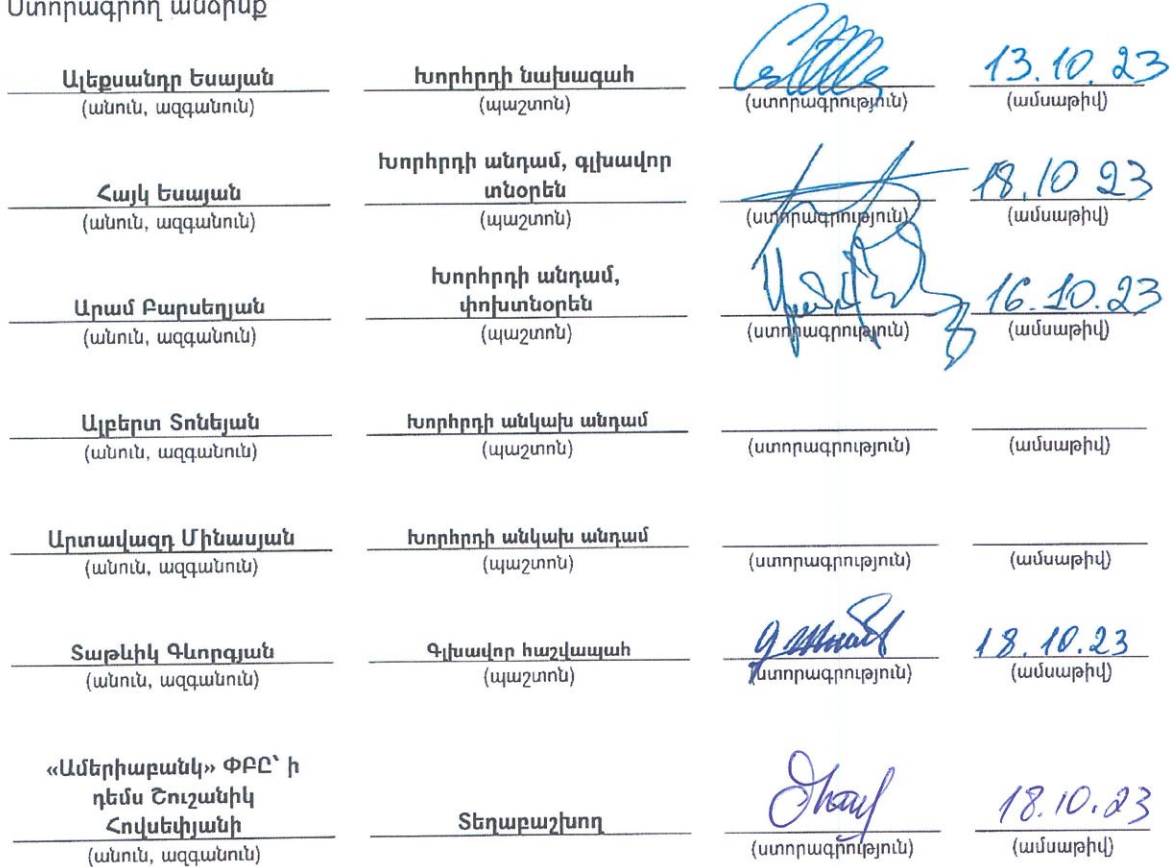 Ստորագրող անձինք
Ալեքսանդր Եսայան Խորհրդի նախագահ 13.10.23
(անուն, ազգանուն) (պաշտոն) (ստորագրություն) (ամսաթիվ)
Խորհրդի անդամ, գլխավոր
Հայկ Եսայան տնօրեն 18.10 23
(անուն, ազգանուն) (պաշտոն) (ստորագրություն) (ամսաթիվ)
Խորհրդի անդամ,
Արամ Բարսեղյան փոխտնօրեն 16.10.23
(անուն, ազգանուն) (պաշտոն) (ստորագրություն) (ամսաթիվ)
Ալբերտ Տոնեյան Խորհրդի անկախ անդամ
(անուն, ազգանուն) (պաշտոն) (ստորագրություն) (ամսաթիվ)
Արտավազդ Մինասյան Խորհրդի անկախ անդամ
(անուն, ազգանուն) (պաշտոն) (ստորագրություն) (ամսաթիվ)
Տաթևիկ Գևորգյան Գլխավոր հաշվապահ 18.10.23
(անուն, ազգանուն) (պաշտոն) (ստորագրություն) (ամսաթիվ)
«Ամերիաբանկ» ՓԲԸ՝ ի
դեմս Շուշանիկ
Հովսեփյանի Տեղաբաշխող 18.10.23
(անուն, ազգանուն) (ստորագրություն) (ամսաթիվ)